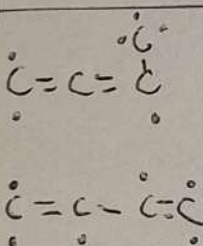 C
C=C=C
C=C-C=C